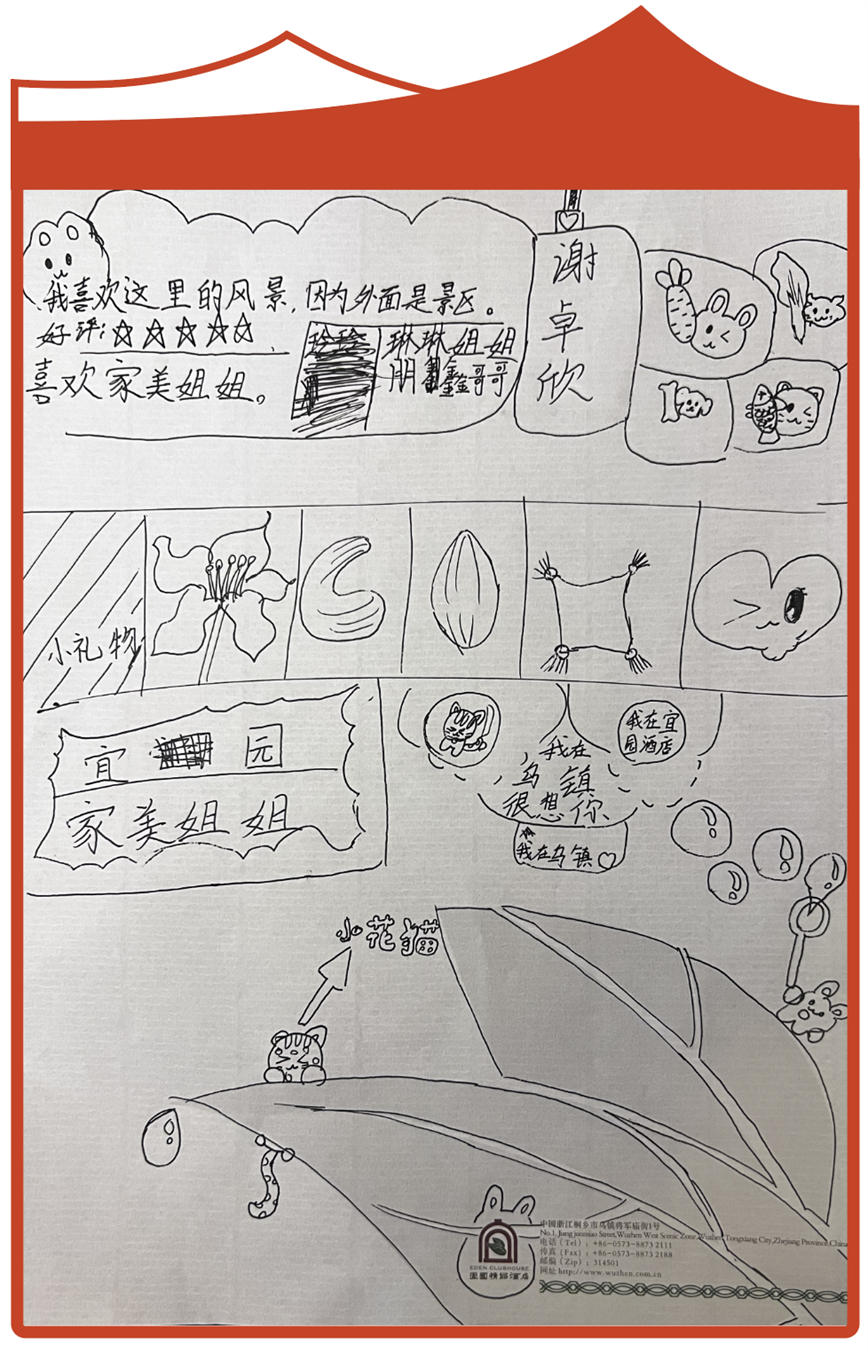 我喜欢这里的风景,因为外面是景区。
好评:☆☆☆☆☆
喜欢家美姐姐。
玲玲
琳琳姐姐
朋鑫哥哥
谢卓欣
小礼物
宜 园
家美姐姐
我在
乌镇
很想你
我在宜
园酒店
我在乌镇♡
小花猫
EDEN CLUBHOUSE
中国浙江桐乡市乌镇将军庙街1号
No.1, Jiang junmiao Street, Wuzhen West Scenic Zone, Wuzhen Tongxiang City, Zhejiang Province, China
电话(Tel):+86-0573-8873 2111
传真(Fax):+86-0573-8873 2188
邮编(Zip):314501
网址 http://www.wuzhen.com.cn